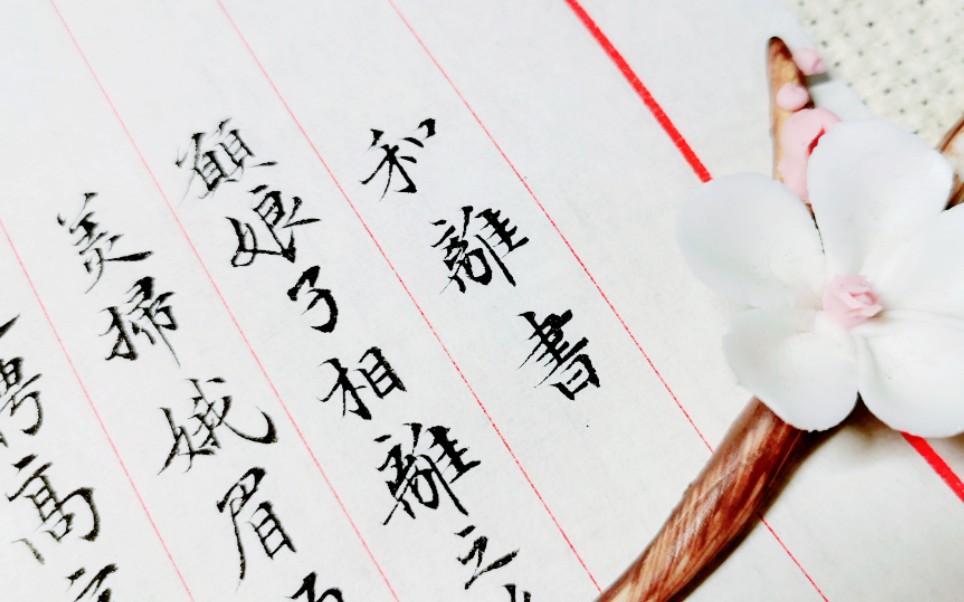 和離書
願娘子相離之
美掃娥眉
聘高